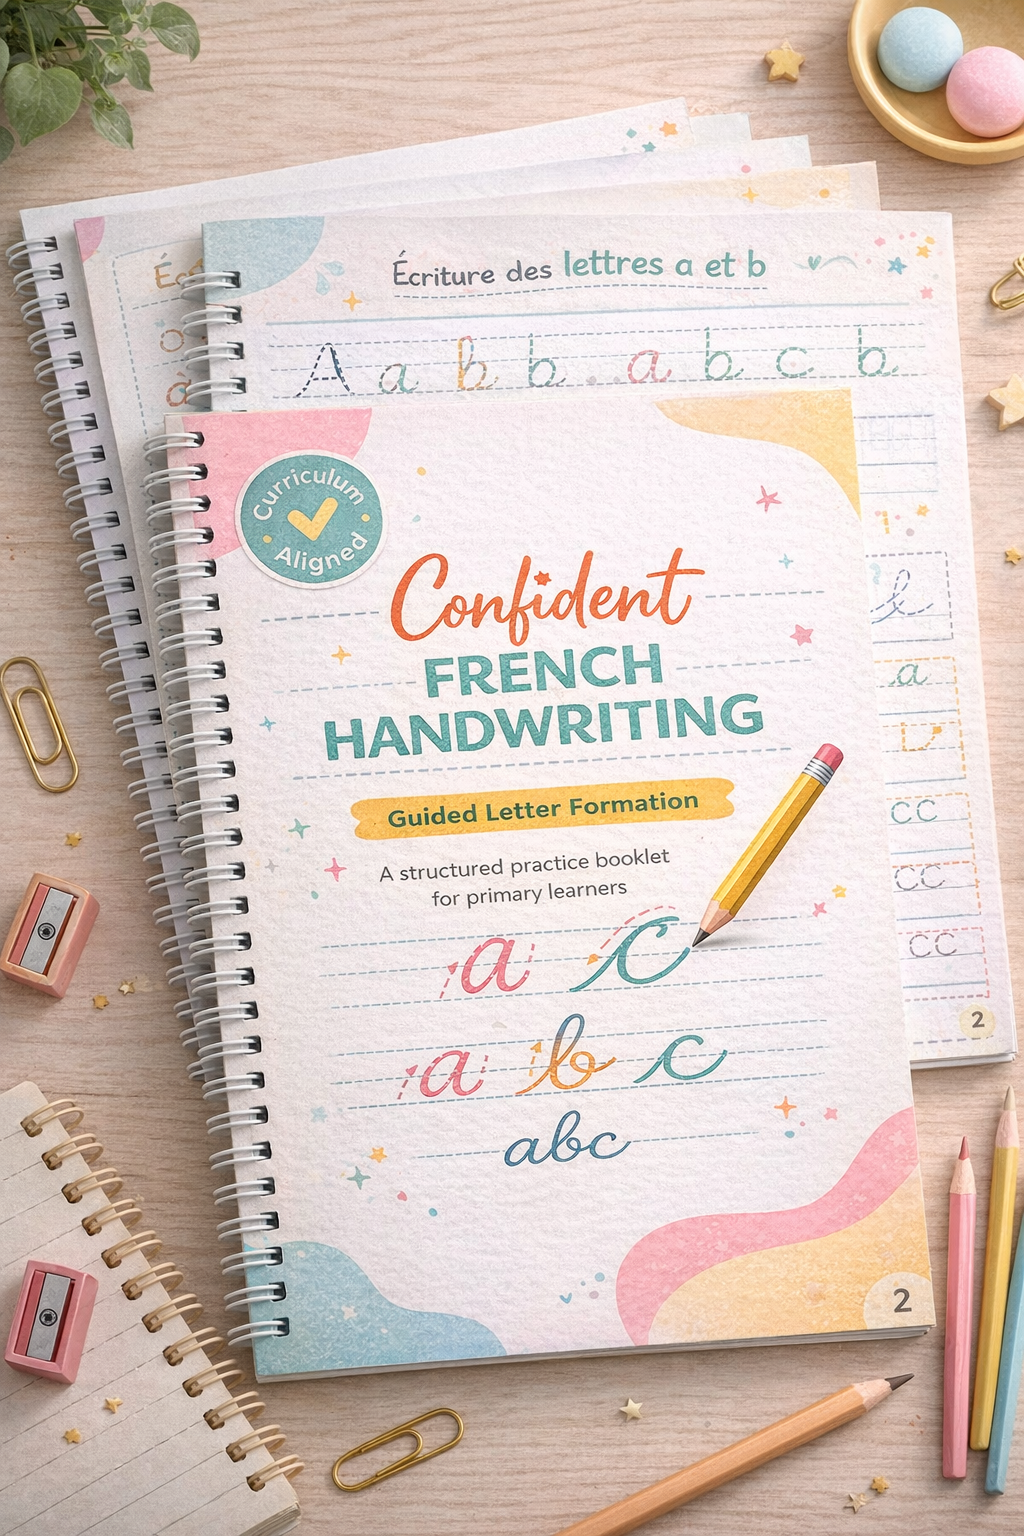 Écriture des lettres a et b
A a b b a b c b
Curriculum
Aligned
Confident
FRENCH
HANDWRITING
Guided Letter Formation
A structured practice booklet
for primary learners
a c
a b c
abc
2
a
cc
cc
cc
2